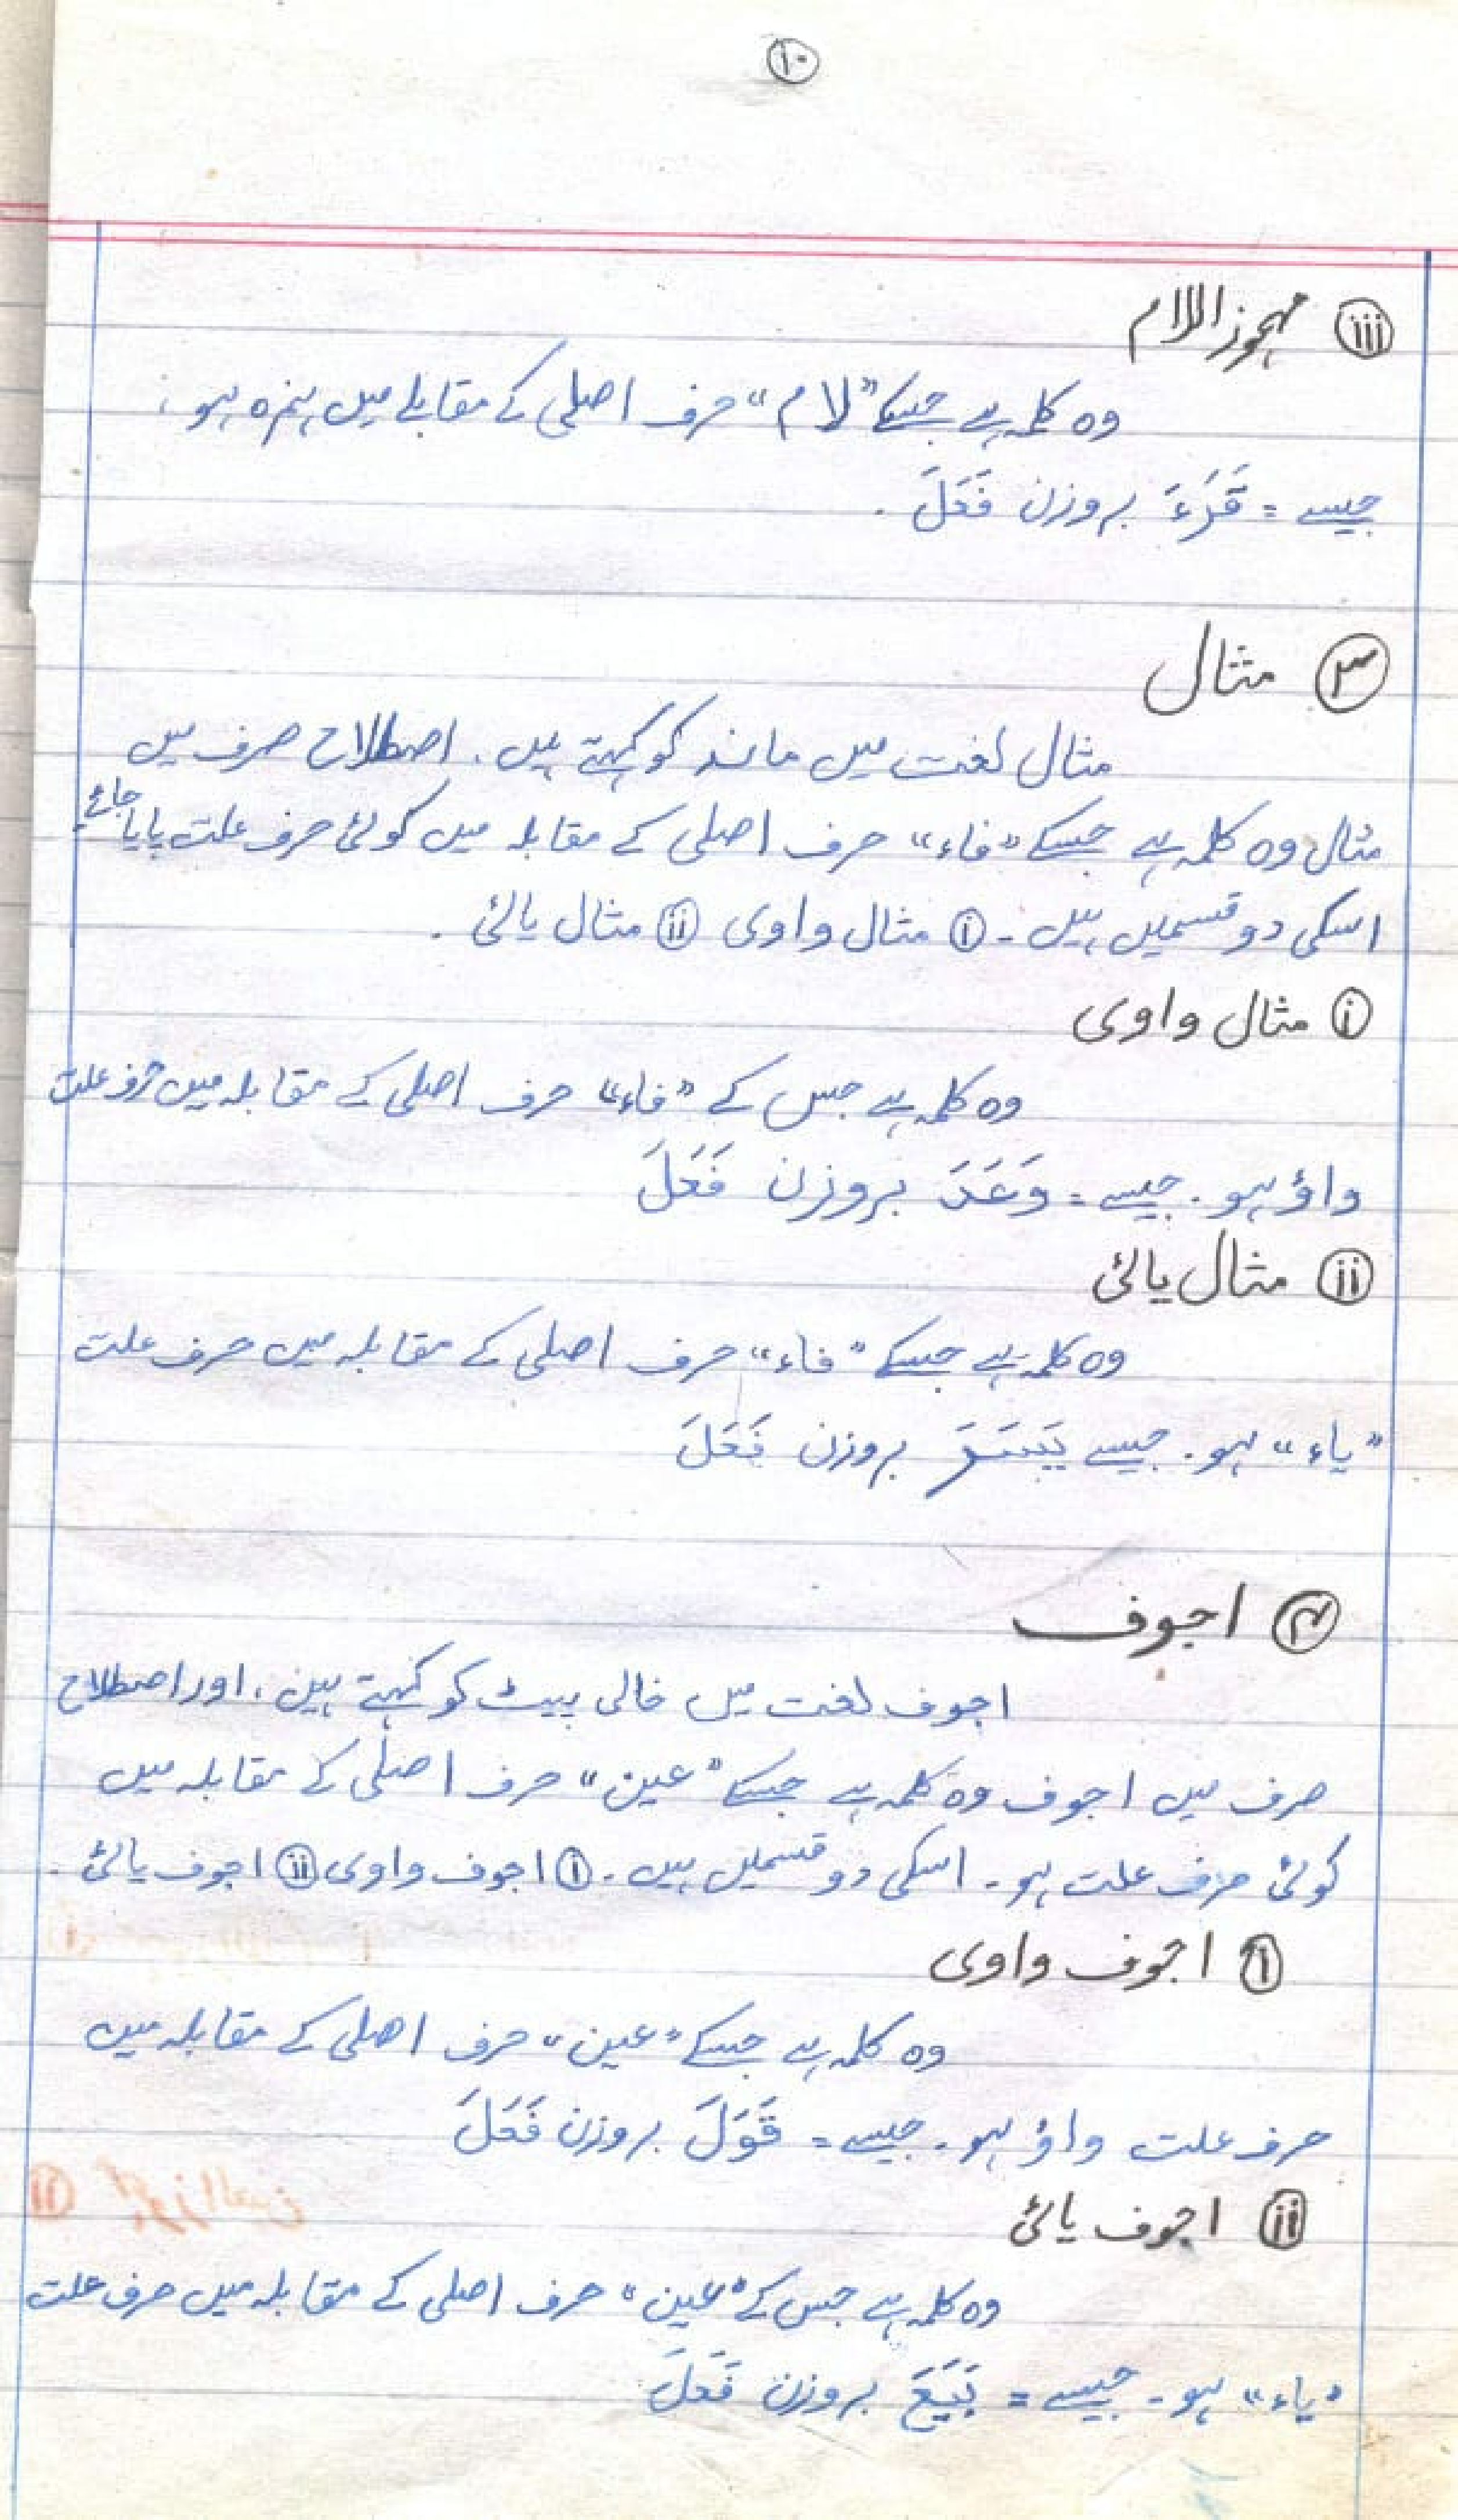 ۱۰
iii مہموز اللام
وہ کلمہ ہے جسکے "لام" حرف اصلی کے مقابلے میں ہمزہ ہو،
جیسے = قَرَءَ بروزن فَعَلَ ۔
۳ مثال
مثال لغت میں مانند کو کہتے ہیں ۔ اصطلاح صرف میں
مثال وہ کلمہ ہے جسکے "فاء" حرف اصلی کے مقابلہ میں کوئی حرف علت پایا جائے
اسکی دو قسمیں ہیں ۔ i مثال واوی ii مثال یائی ۔
i مثال واوی
وہ کلمہ ہے جس کے "فاء" حرف اصلی کے مقابلہ میں حرف علت
واؤ ہو ۔ جیسے = وَعَدَ بروزن فَعَلَ
ii مثال یائی
وہ کلمہ ہے جسکے "فاء" حرف اصلی کے مقابلہ میں حرف علت
"یاء" ہو ۔ جیسے یَسَرَ بروزن فَعَلَ
۴ اجوف
اجوف لغت میں خالی پیٹ کو کہتے ہیں، اور اصطلاح
صرف میں اجوف وہ کلمہ ہے جسکے "عین" حرف اصلی کے مقابلہ میں
کوئی حرف علت ہو ۔ اسکی دو قسمیں ہیں ۔ i اجوف واوی ii اجوف یائی ۔
i اجوف واوی
وہ کلمہ ہے جسکے "عین" حرف اصلی کے مقابلہ میں
حرف علت واؤ ہو ۔ جیسے = قَوَلَ بروزن فَعَلَ
ii اجوف یائی
وہ کلمہ ہے جس کے "عین" حرف اصلی کے مقابلہ میں حرف علت
"یاء" ہو ۔ جیسے = بَیَعَ بروزن فَعَلَ